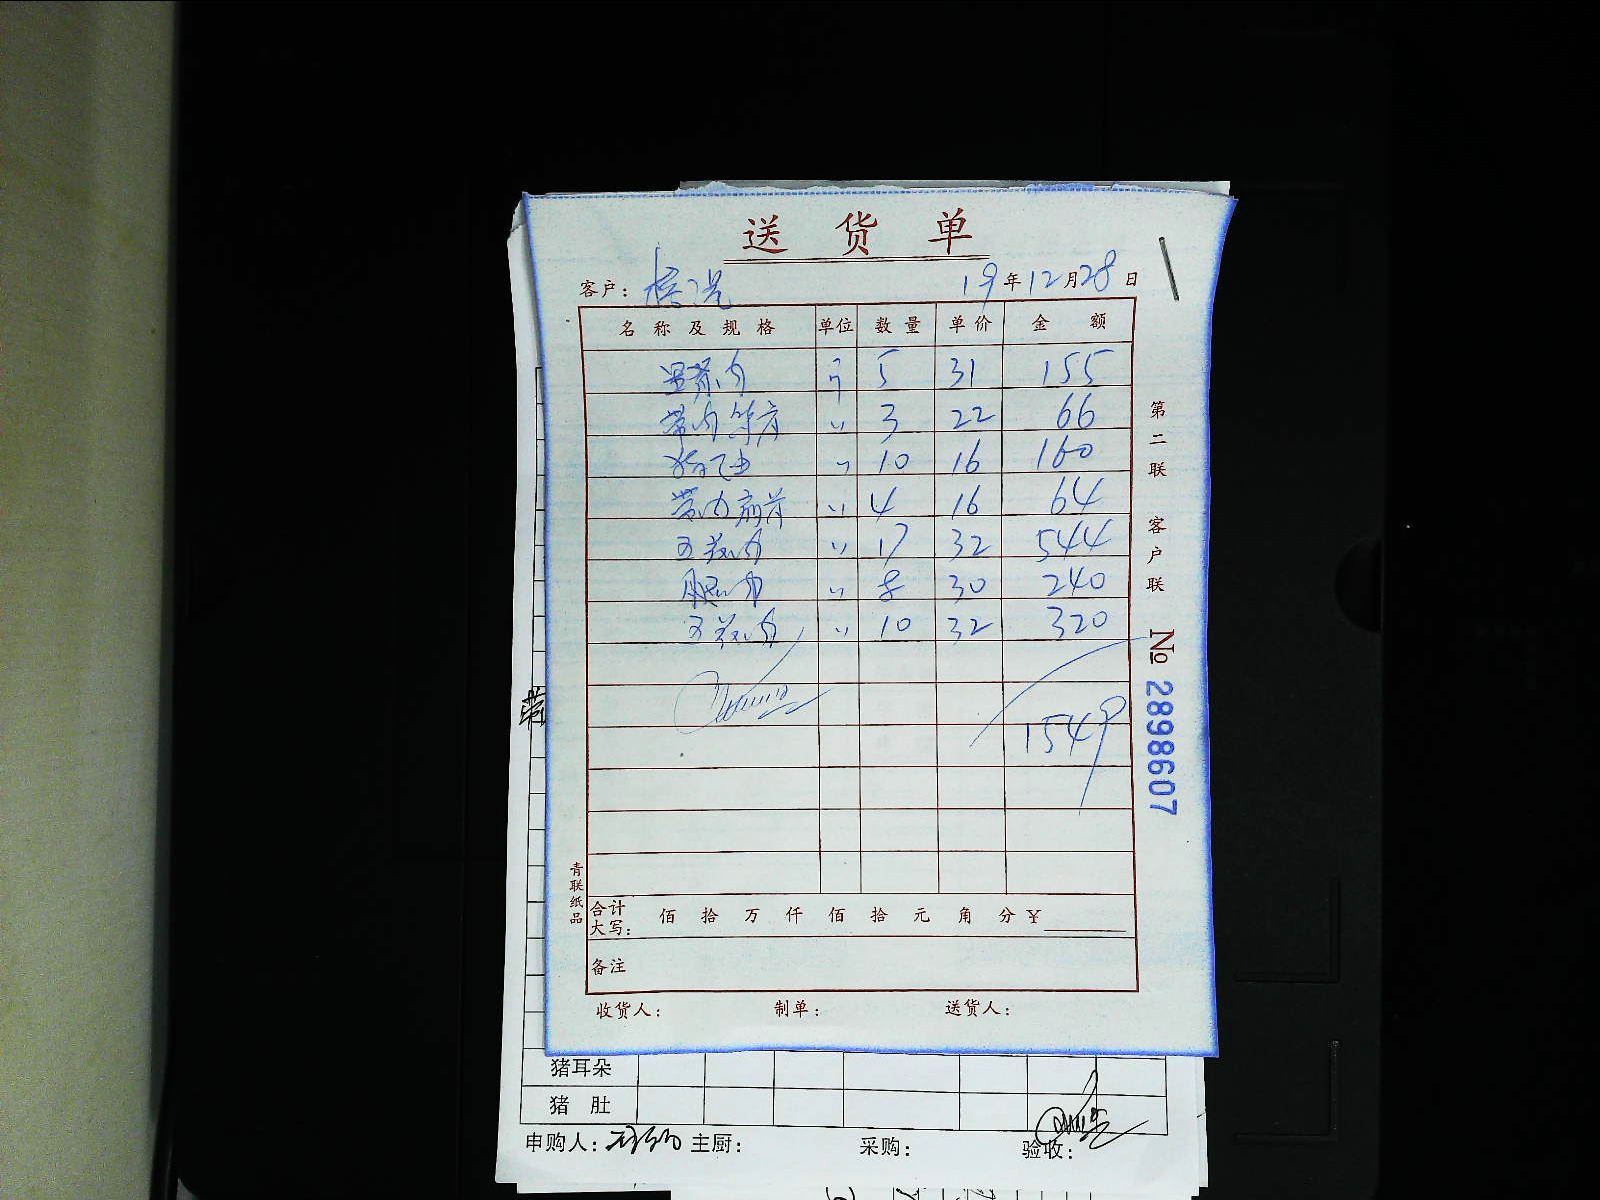 送货单
客户： 19年12月28日
名称及规格 单位 数量 单价 金额
里脊肉 斤 5 31 155
带肉筒骨 〃 3 22 66
猪油 〃 10 16 160
带肉扇骨 〃 4 16 64
五花肉 〃 17 32 544
腿肉 〃 8 30 240
五花肉 〃 10 32 320
1549
合计大写： 佰 拾 万 仟 佰 拾 元 角 分 ¥
备注
收货人： 制单： 送货人：
第二联 客户联
№ 2898607
青联纸品
猪耳朵
猪肚
申购人： 主厨： 采购： 验收：